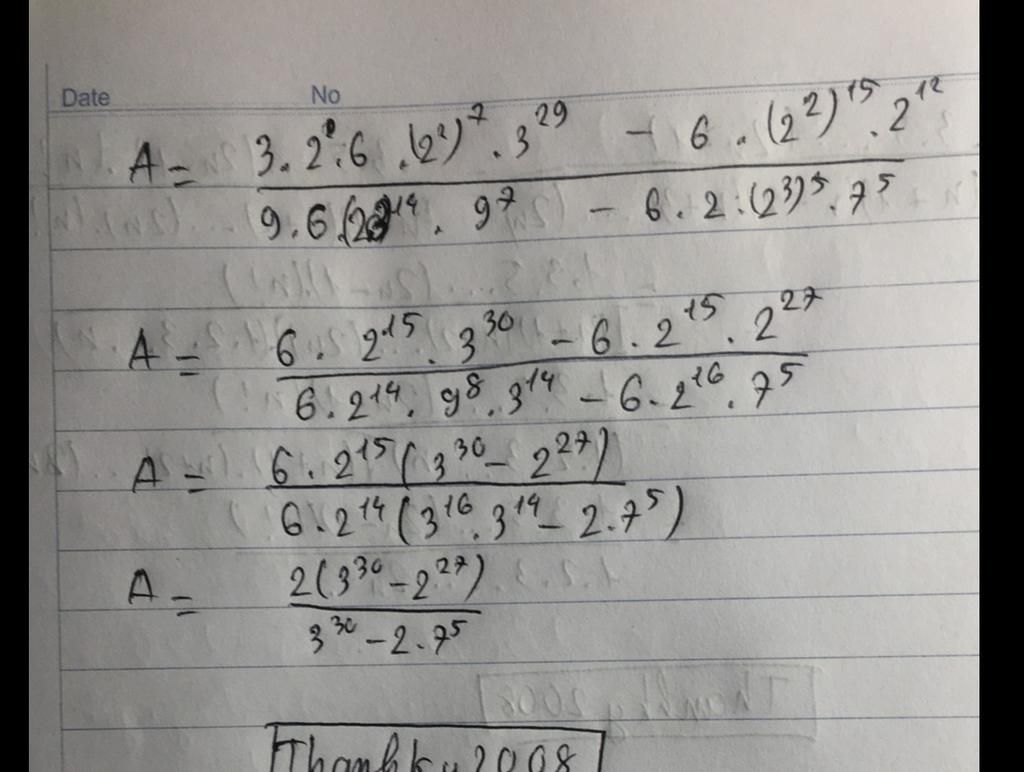 Date No
A = \frac{3 \cdot 2 \cdot 6 \cdot (2^2)^7 \cdot 3^{29} - 6 \cdot (2^2)^{15} \cdot 2^{12}}{9 \cdot 6 \cdot (2)^{14} \cdot 9^7 - 6 \cdot 2 \cdot (2^3)^5 \cdot 7^5}
A = \frac{6 \cdot 2^{15} \cdot 3^{30} - 6 \cdot 2^{15} \cdot 2^{27}}{6 \cdot 2^{14} \cdot 9^8 \cdot 3^{14} - 6 \cdot 2^{16} \cdot 7^5}
A = \frac{6 \cdot 2^{15} (3^{30} - 2^{27})}{6 \cdot 2^{14} (3^{16} \cdot 3^{14} - 2 \cdot 7^5)}
A = \frac{2(3^{30} - 2^{27})}{3^{30} - 2 \cdot 7^5}
2008